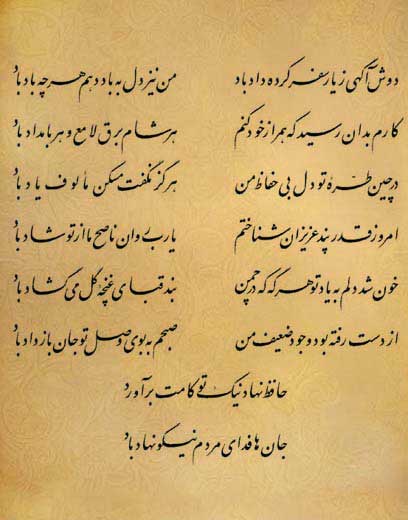 دوش آگهی ز یار سفر کرده داد باد من نیز دل به باد دهم هر چه باد باد
کارم بدان رسید که همراز خود کنم هر شام برق لامع و هر بامداد باد
در چین طره تو دل بی حفاظ من هرگز نگفت مسکن مالوف یاد باد
امروز قدر پند عزیزان شناختم یارب روان ناصح ما از تو شاد باد
خون شد دلم به یاد تو هر گه که در چمن بند قبای غنچه گل می گشاد باد
از دست رفته بود وجود ضعیف من صبحم به بوی وصل تو جان باز داد باد
حافظ نهاد نیک تو کامت برآورد
جان ها فدای مردم نیکو نهاد باد